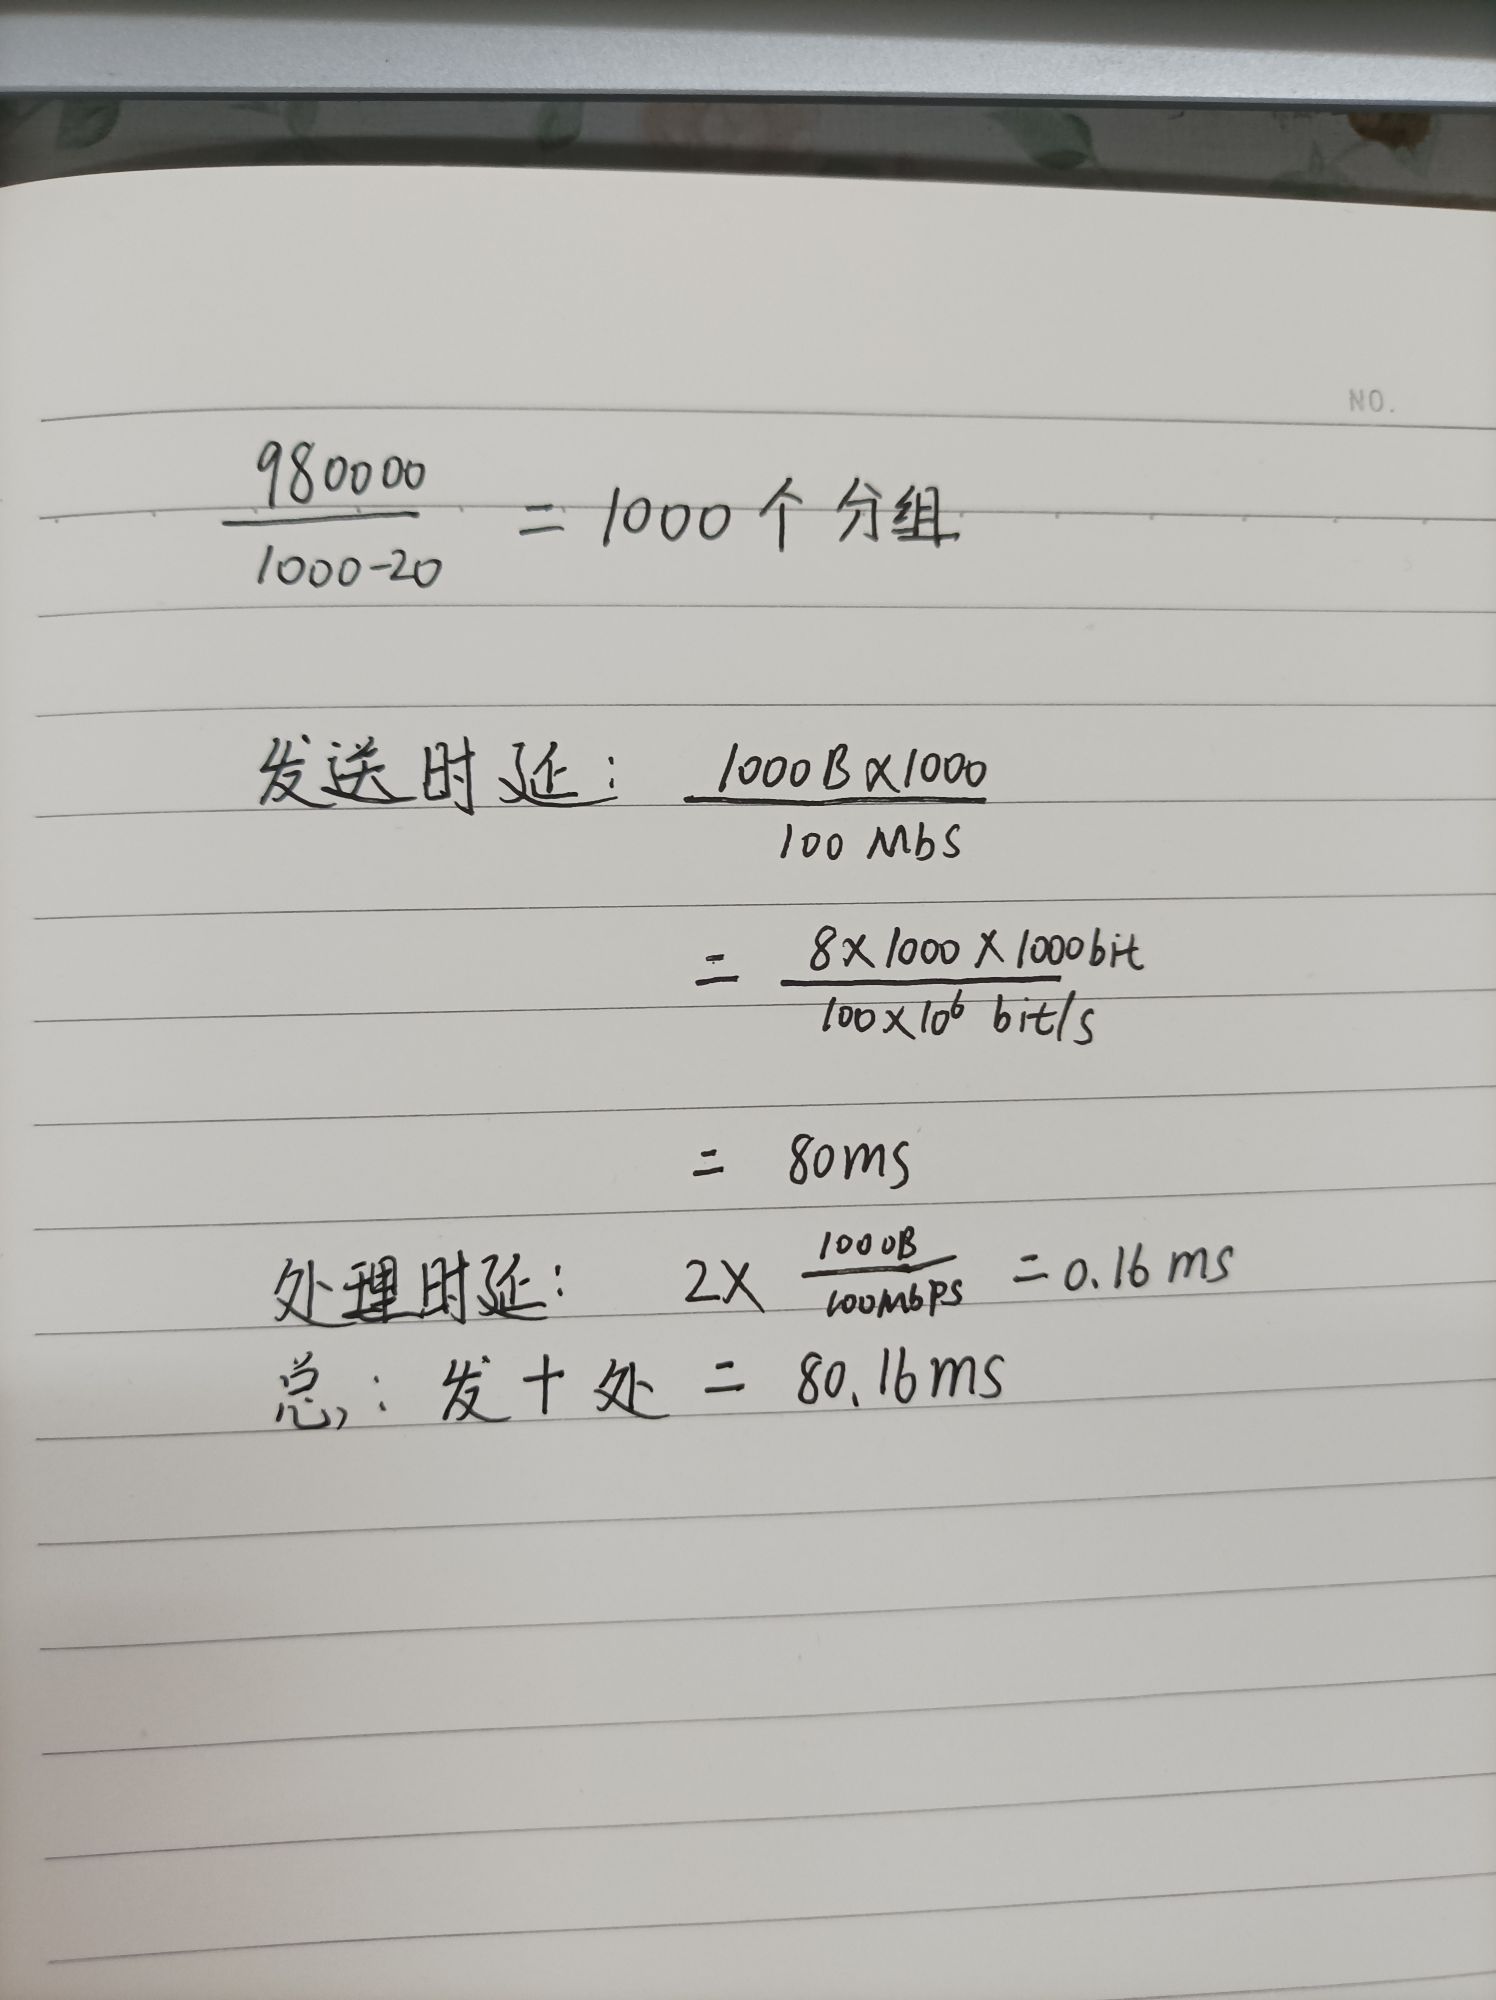 NO.
980000
1000-20
= 1000个分组
发送时延: 1000B×1000
100 Mbs
= 8×1000×1000bit
100×10⁶ bit/s
= 80ms
处理时延: 2× 1000B
100Mbps
=0.16ms
总: 发+处 = 80.16ms